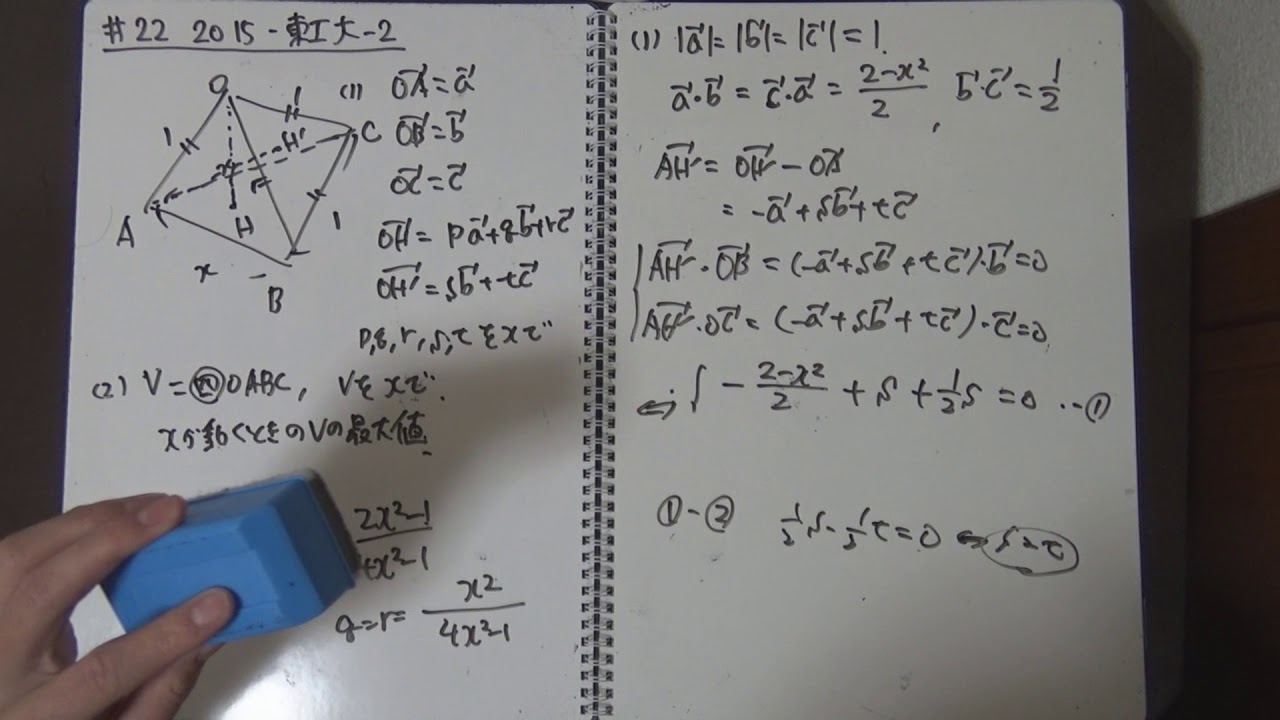 #22 2015-東工大-2
O
1
1
A
H'
C
H
1
x
B
(1) OA→=a→
OB→=b→
OC→=c→
OH→=pa→+qb→+rc→
OH'→=sb→+tc→
p,q,r,s,tをxで
(2) V=四OABC, Vをxで.
xが動くときのVの最大値.
2x²-1
4x²-1
q=r= x²/(4x²-1)
(1) |a→|=|b→|=|c→|=1.
a→・b→=c→・a→=(2-x²)/2, b→・c→=1/2
AH'→=OH'→-OA→
=-a→+sb→+tc→
AH'→・OB→=(-a→+sb→+tc→)・b→=0
AH'→・OC→=(-a→+sb→+tc→)・c→=0
⇔ { -(2-x²)/2+s+1/2s=0 …①
①-② 1/2s-1/2t=0 ⇔ s=t